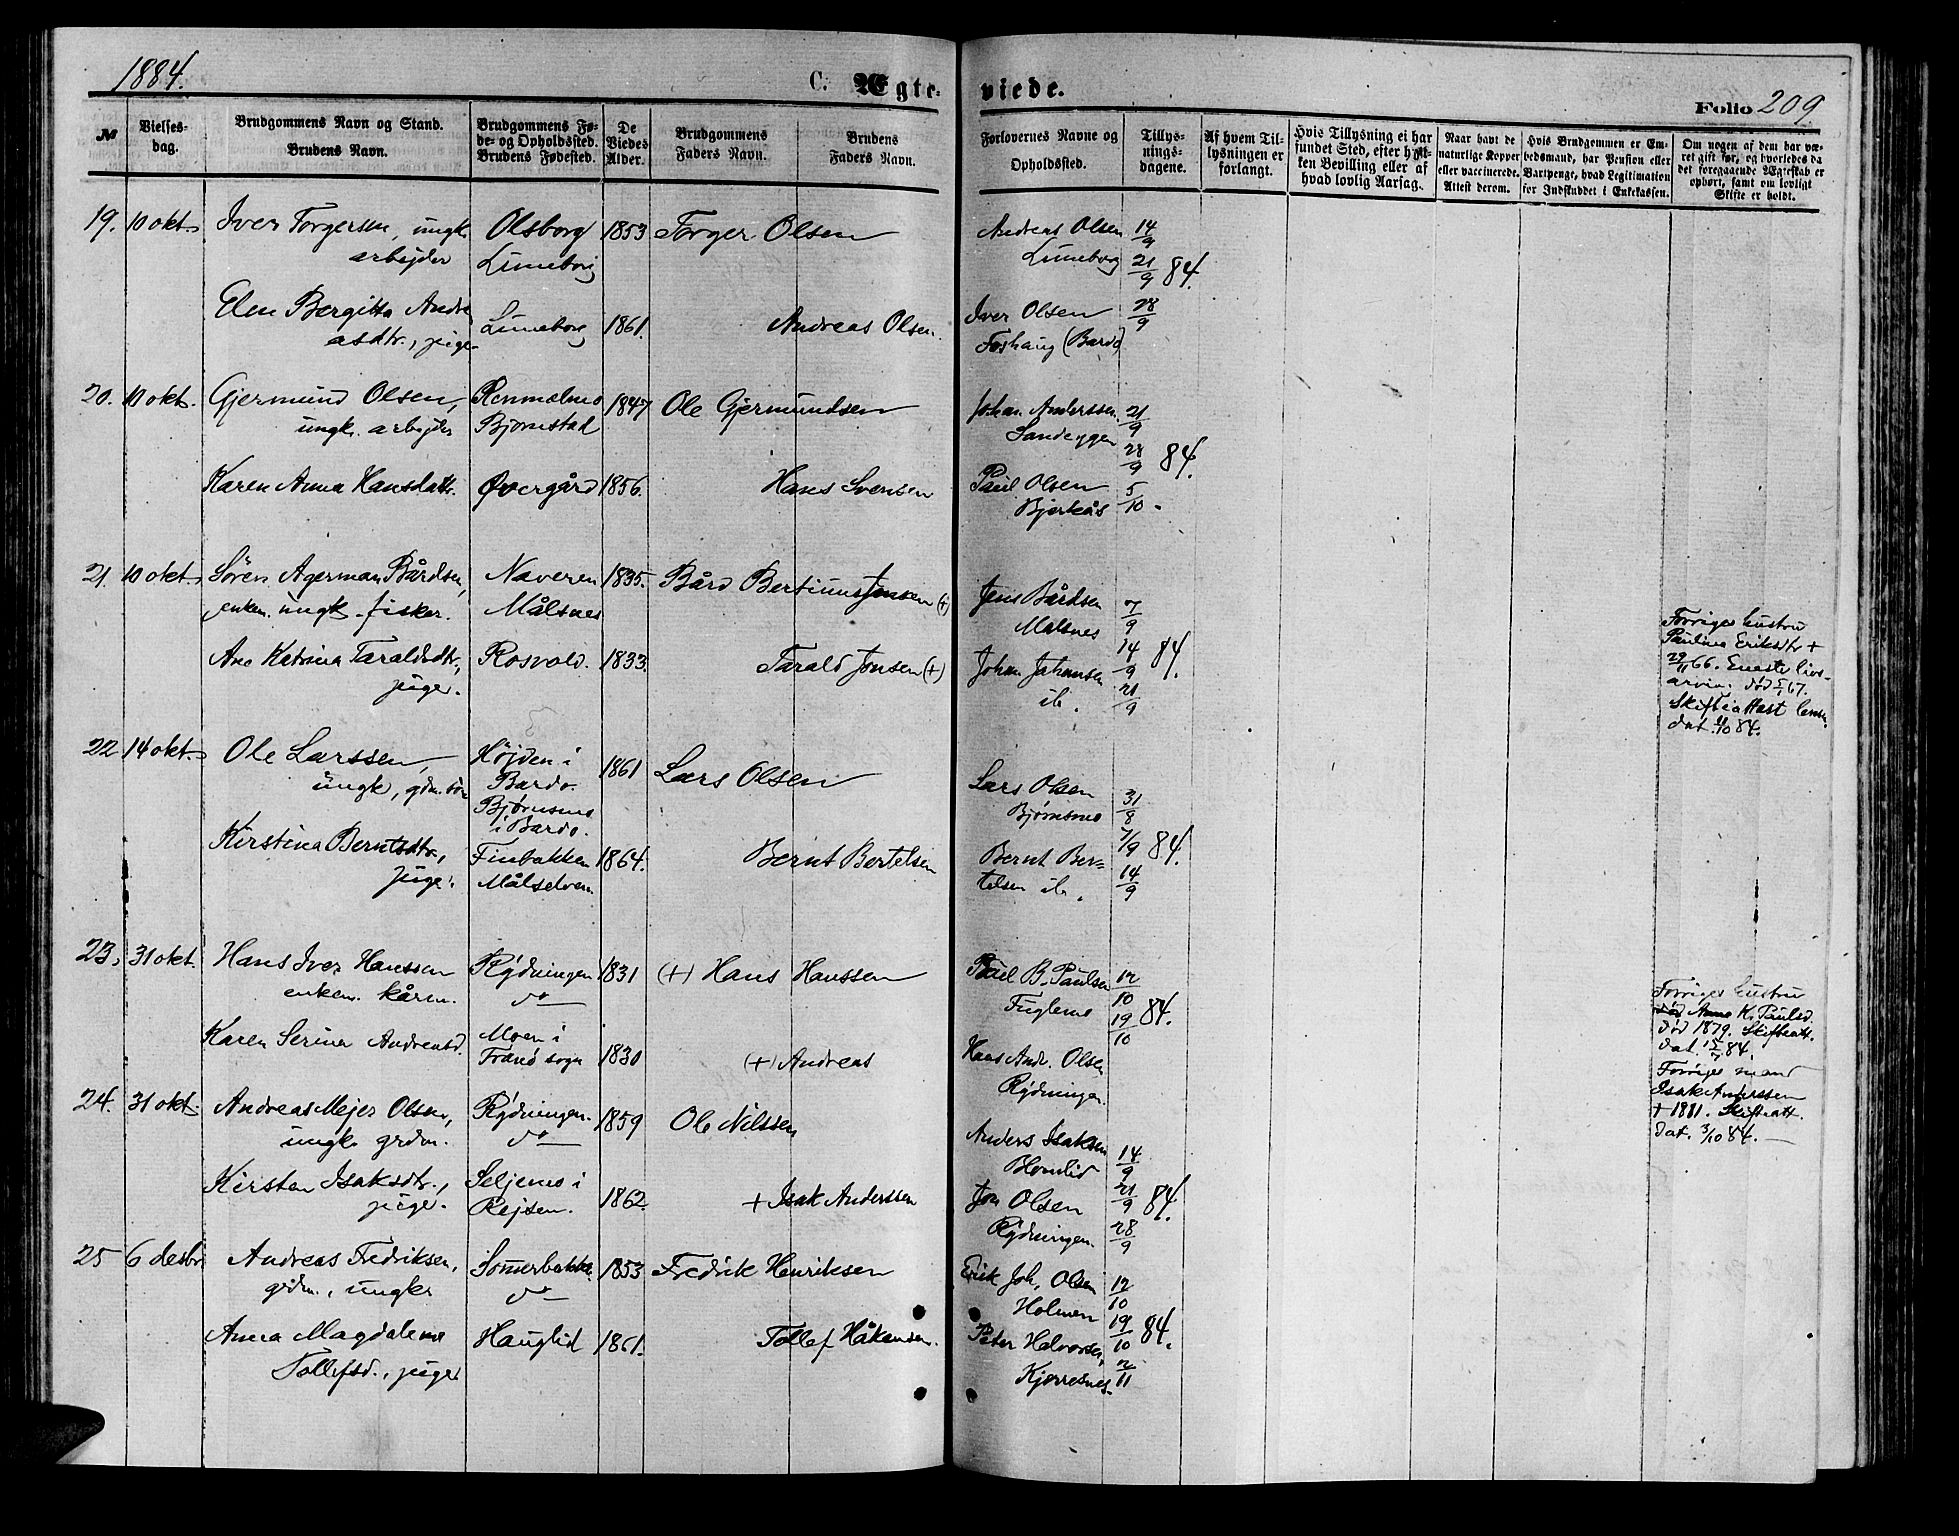 1884.
C. Ægteviede.
Folio 209.
№
Vielsesdag.
Brudgommens Navn og Stand.
Brudens Navn.
Brudgommens Føde- og Opholdssted.
Brudens Fødested.
De Viedes Alder.
Brudgommens Faders Navn.
Brudens Faders Navn.
Forlovernes Navne og Opholdssted.
Tillysningsdagene.
Af hvem Tillysningen er forlangt.
Hvis Tillysning ei har fundet Sted, efter hvilken Bevilling eller af hvad lovlig Aarsag.
Naar havt de naturlige Kopper eller vaccinerede. Attest derom.
Hvis Brudgommen er Embedsmand, har Pension eller Vartpenge, hvad Legitimation for Indskuddet i Enkekassen.
Om nogen af dem har været gift før, og hvorledes da det foregaaende Ægteskab er ophørt, samt om lovligt Skifte er holdt.
19. 10 okt. Iver Torgersen, ungk. arbejder
Olsborg Limeborg 1853 Torger Olsen
Andreas Olsen Limeborg 14/9 21/9 84.
Elen Bergitta Andreasdtr., pige
Limeborg 1861. Andreas Olsen.
Iver Olsen Foshaug (Bardo) 28/9
20. 10 okt. Gjermund Olsen, ungk. arbejder
Renmælmo Bjørnstad 1847 Ole Gjermundsen
Johan Anderssen Sandeggen 21/9 28/9 84.
Karen Anna Hansdatr. Øvergård 1856. Hans Svensen
Paul Olsen Bjerkås 5/10.
21. 10 okt. Sören Agerman Bårdsen, enkem. ungk. fisker.
Naveren Målsnes 1835. Bård Bertinus Jensen (+)
Jens Bårdsen Målsnes 7/9 14/9 84.
Ane Katrina Taraldsdtr., pige.
Rosvold. 1833. Tarald Jonsen (+)
Johan Johansen ib. 21/9
Forrige hustru
Paulina Eriksdtr +
29/11 66. Eneste livs-
arving død 5/1 67.
Skifteattest
dat. 4/10 84.
22. 14 okt. Ole Larssen, ungk., gdm.sön
Højden i Bardo. Bjørnsmo i Bardo. 1861 Lars Olsen
Lars Olsen Bjørnsmo 31/8 7/9 84.
Kirstina Berntsdtr., pige.
Finbakken Målselven. 1864. Bernt Bertelsen
Bernt Bertelsen ib. 14/9
23. 31 okt. Hans Iver Hanssen enkem. kårm.
Rydningen do 1831 (+) Hans Hanssen
Paul B. Paulsen Fuglemo 12/10 19/10 84.
Karen Serina Andreasd.
Moen i Tranö sogn 1830 (+) Andreas
Hans Andr. Olsen Rydningen.
Forrige hustru
død Anna K. Paulsd.
død 1879. Skifteatt.
dat. 15/7 84.
Forrige mand
Isak Anderssen
+ 1881. Skifteatt.
dat. 3/10 84.
24. 31 okt. Andreas Mejer Olsen, ungk. grdm.
Rydningen. do 1859 Ole Nilssen
Anders Isaksen Blomlid 14/9
Kirsten Isaksdtr., pige.
Seljemo i Rejsen. 1862. + Isak Anderssen
Jon Olsen Rydningen. 21/9 84. 28/9
25 6 desbr. Andreas Fredriksen, grdm., ungkr
Sommerbakke. do 1853 Fredrik Henriksen
Erik Joh. Olsen Holmen 12/10 19/10 84.
Anna Magdalena Tollefsd., pige
Hauglid 1861. Tollef Håkensen.
Peter Halvorsen, Kjerresnes 2/11